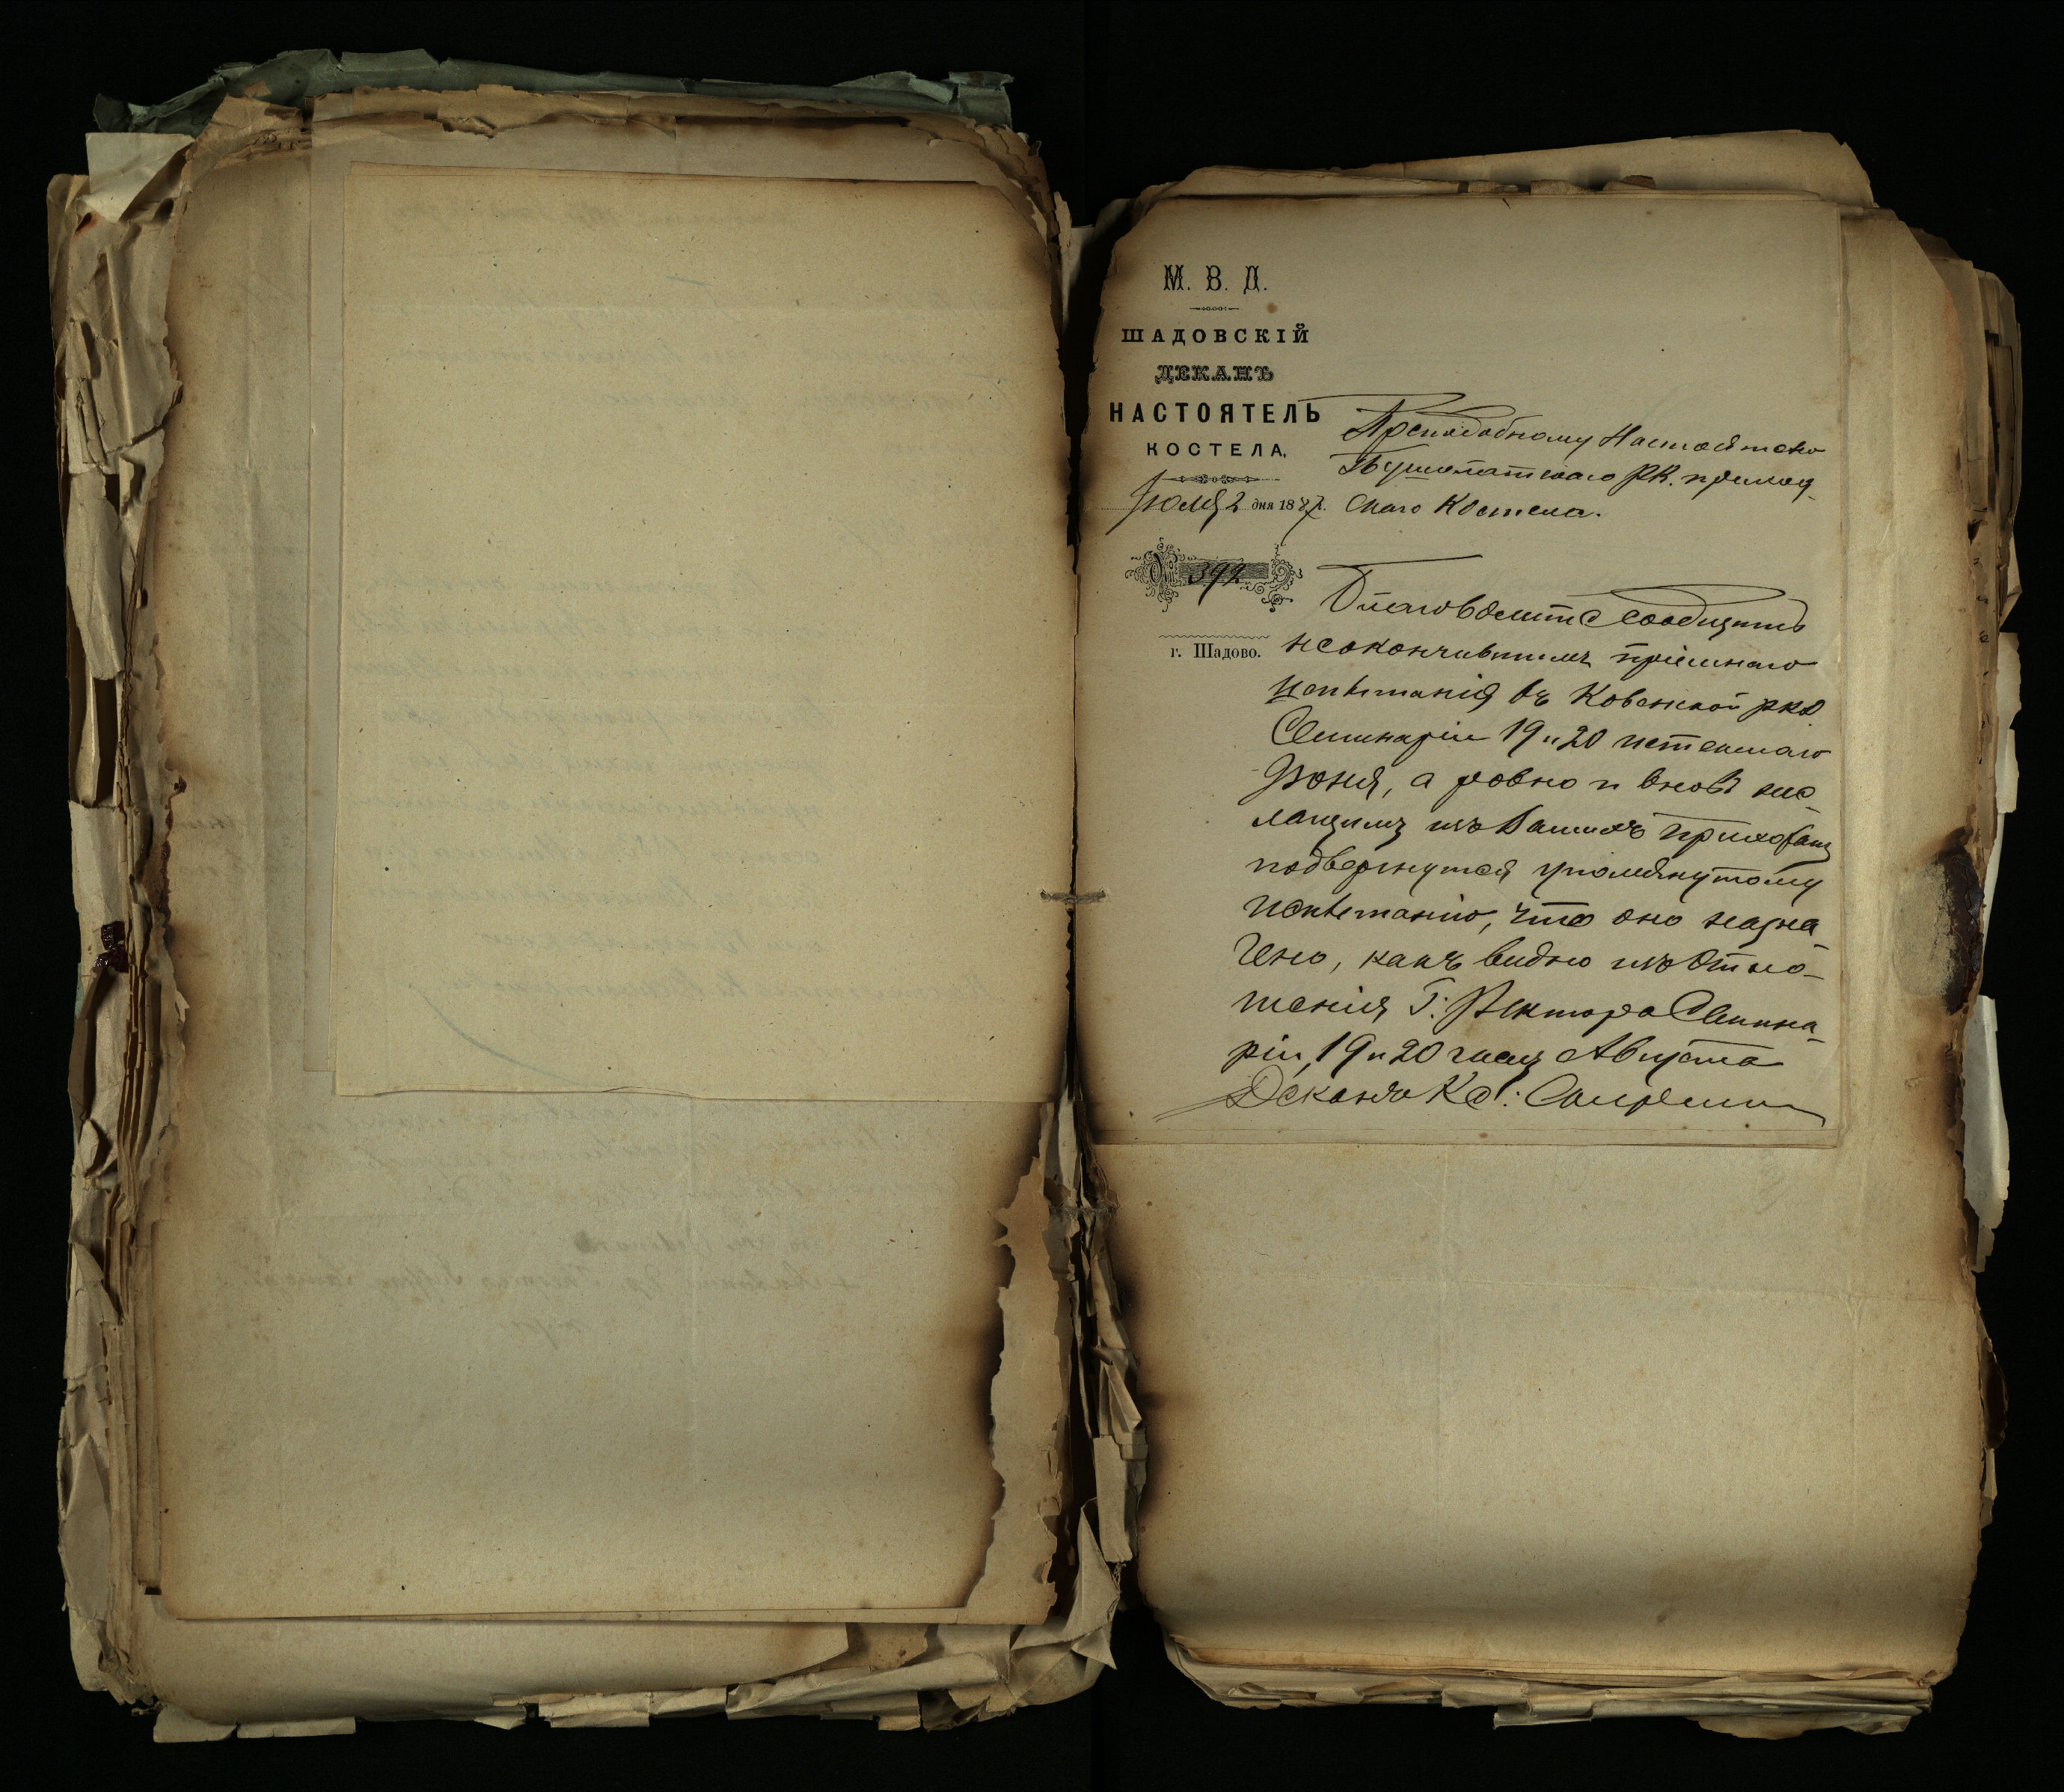 М. В. Д.
ШАДОВСКІЙ
ДЕКАНЪ
НАСТОЯТЕЛЬ
КОСТЕЛА.
Іюля 2 дня 1887 г.
№ 392
г. Шадово.
Преподобному Настоятелю
РК. приход-
скаго Костела.
Благоволите сообщить
неокончившимъ пріемнаго
испытанія въ Ковенской ркд
Семинаріи 19 и 20 истекшаго
Іюня, а ровно и вновь же-
лающимъ изъ Вашихъ прихожанъ
подвергнутся упомянутому
испытанію, что оно назна-
чено, какъ видно изъ отно-
шенія Г: Ректора Семина-
ріи, 19 и 20 числ Августа
Деканъ Кс: